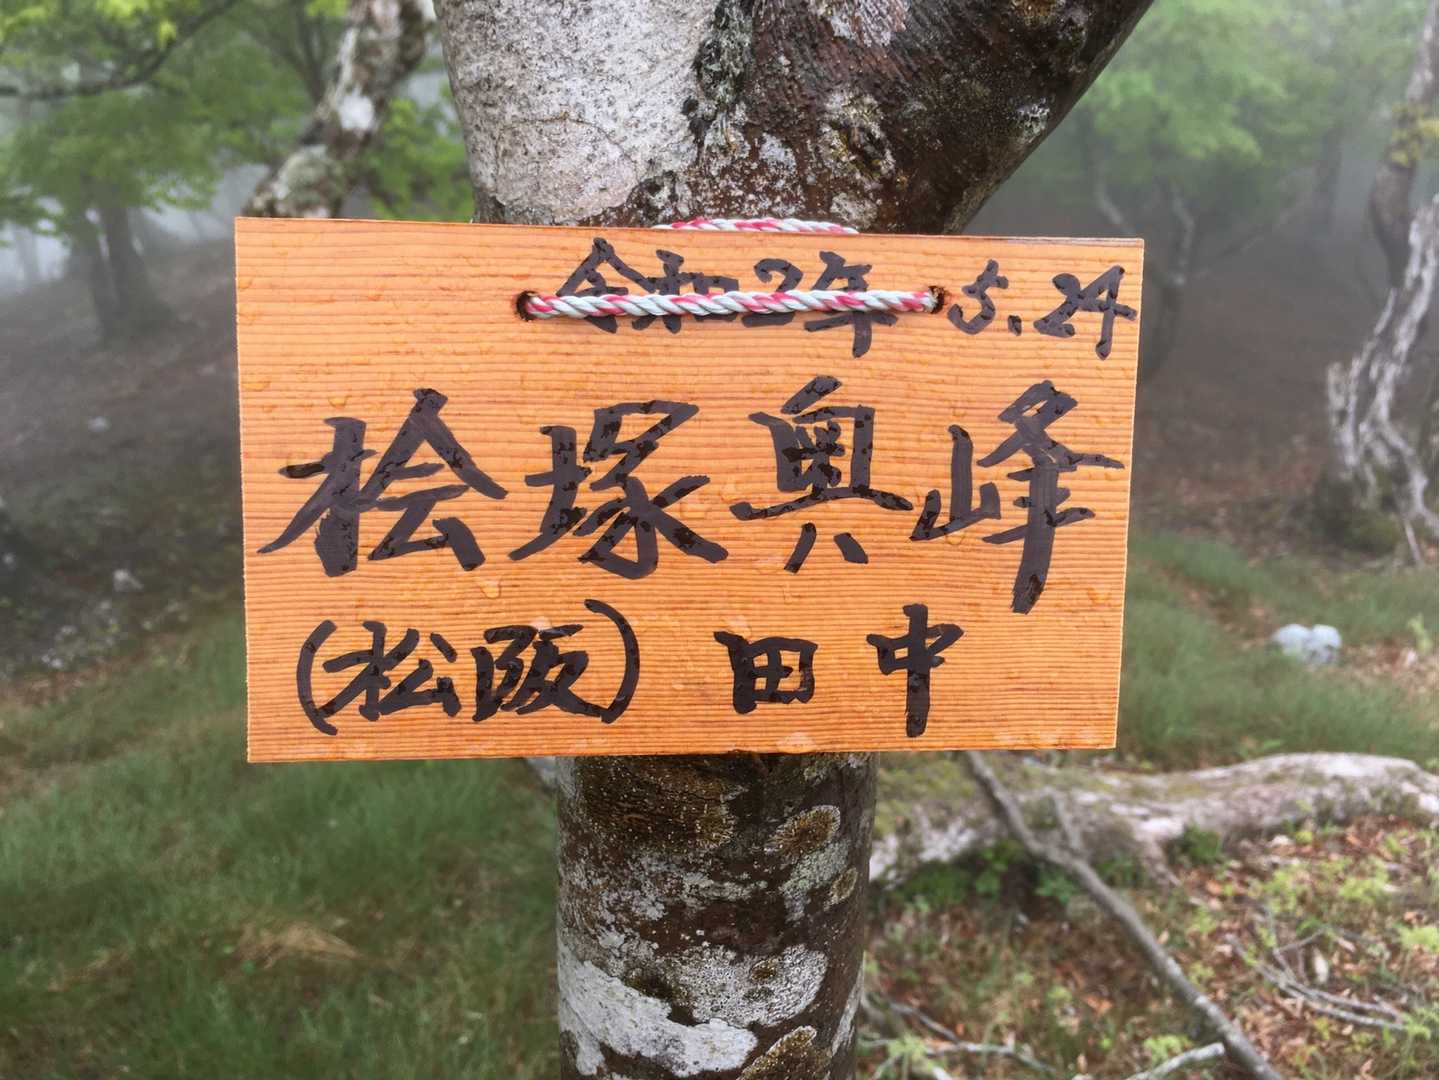 令和2年 5.24
桧塚奥峰
(松阪) 田中